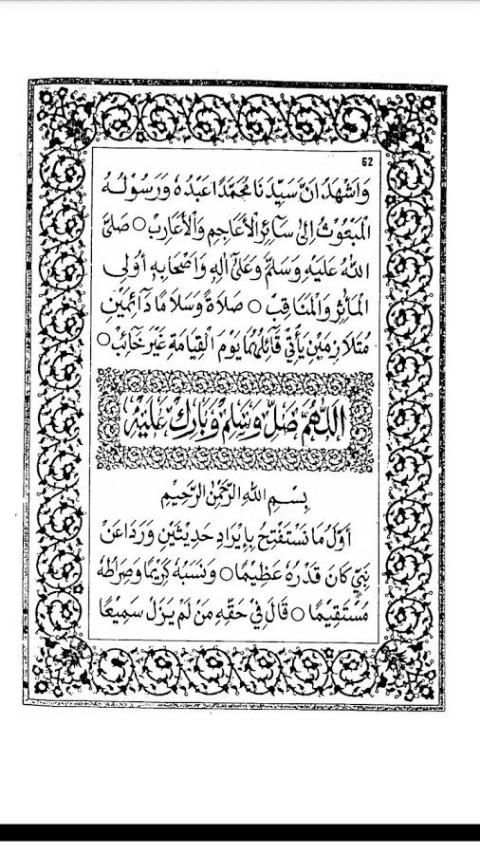 62
وَاَشْهَدُ اَنَّ سَيِّدَنَا مُحَمَّدًا عَبْدُهُ وَرَسُوْلُهُ
الْمَبْعُوْثُ اِلٰى سَآئِرِ الْاَعَاجِمِ وَالْاَعَارِبْ ○ صَلَّى
اللّٰهُ عَلَيْهِ وَسَلَّمَ وَعَلٰى اٰلِهِ وَاَصْحَابِهِ اُولِى
الْمَاٰثِرِ وَالْمَنَاقِبْ ○ صَلَاةً وَسَلَامًا دَآئِمَيْنِ
مُتَلَازِمَيْنِ يَأْتِيْ قَآئِلُهُمَا يَوْمَ الْقِيَامَةِ غَيْرَ خَآئِبْ ○
اَللّٰهُمَّ صَلِّ وَسَلِّمْ وَبَارِكْ عَلَيْهِ
بِسْمِ اللّٰهِ الرَّحْمٰنِ الرَّحِيْمِ
اَوَّلُ مَا نَسْتَفْتِحُ بِاِيْرَادِ حَدِيْثَيْنِ وَرَدَا عَنْ
نَبِيٍّ كَانَ قَدْرُهُ عَظِيْمًا ○ وَنَسَبُهُ كَرِيْمًا وَصِرَاطُهُ
مُسْتَقِيْمًا ○ قَالَ فِيْ حَقِّهِ مَنْ لَمْ يَزَلْ سَمِيْعًا